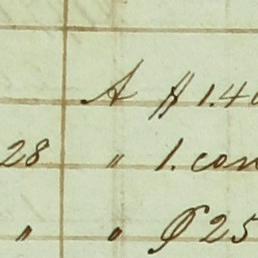 A # 1.40
28 " 1. con
" " 25